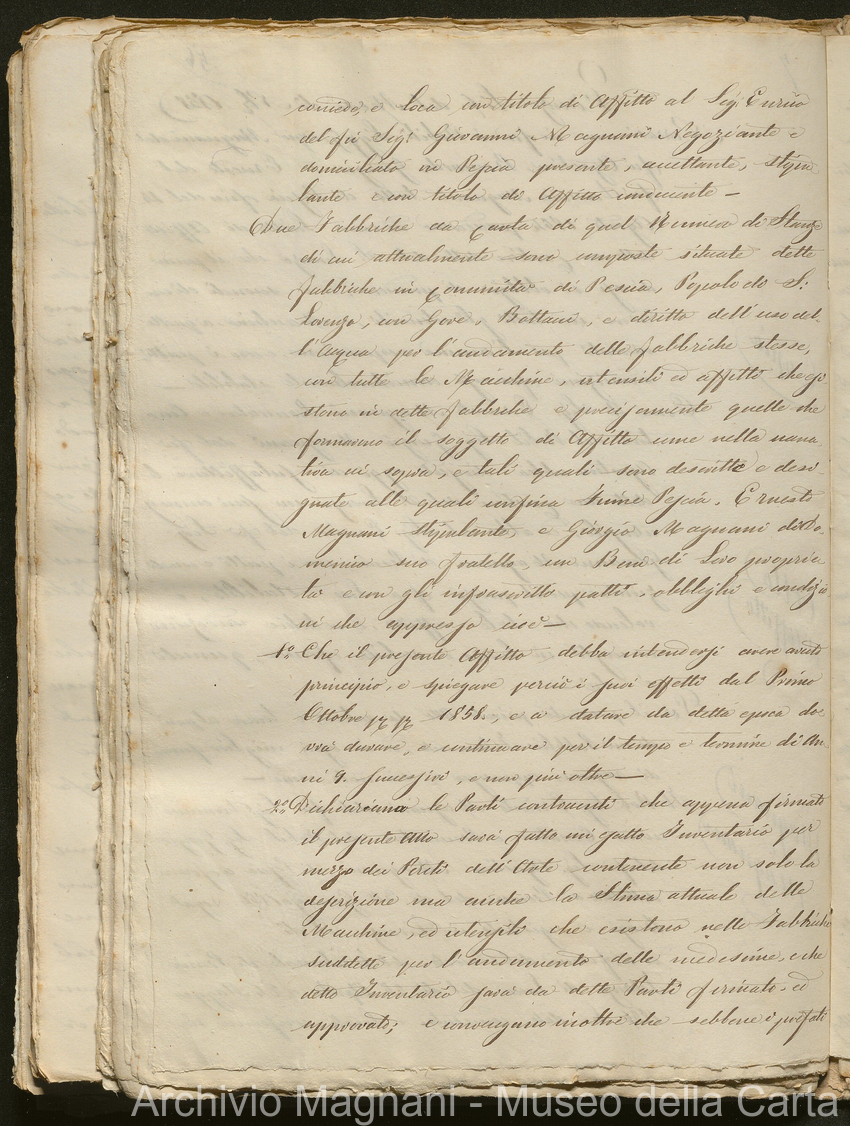 concede, e loca con titolo di Affitto al Sig: Enrico
del fù Sig: Giovanni Magnani Negoziante e
domiciliato in Pescia presente, accettante, stipu
lante e con titolo di Affitto conducente —
Due Fabbriche da Carta di quel Numero di Stanze
di cui attualmente sono composte situate dette
Fabbriche in Comunità di Pescia, Popolo di S:
Lorenzo, con Gore, Bottacci, e diritto dell'uso del-
l'Acqua per l'andamento delle fabbriche stesse,
con tutte le Macchine, utensili ed affitti che esi
stono in dette fabbriche e precisamente quelle che
formarono il soggetto di Affitto come nella narra
tiva di sopra, e tali quali sono descritte e desi
gnate alle quali confina Fiume Pescia, Ernesto
Magnani Stipulante, e Giorgio Magnani di Do-
menico suo fratello, con Beni di Loro proprie
tà e con gli infrascritti patti, obblighi e condizio
ni che appresso cioè —
1º Che il presente Affitto debba intendersi avere avuto
principio, e spiegare perciò i suoi effetti dal Primo
Ottobre 1858., e a datare da detta epoca do
vrà durare, e continuare per il tempo e termine di An
ni 9. successivi, e non più oltre —
2º Dichiarano le Parti contraenti che appena firmato
il presente Atto sarà fatto un esatto Inventario per
mezzo dei Periti dell'Arte contenente non solo la
descrizione ma anche la Stima attuale delle
Macchine, ed utensili che esistono nelle Fabbriche
suddette per l'andamento delle medesime, e che
detto Inventario sarà da dette Parti firmato, ed
approvato; e convengono inoltre che sebbene i prefati
Archivio Magnani - Museo della Carta